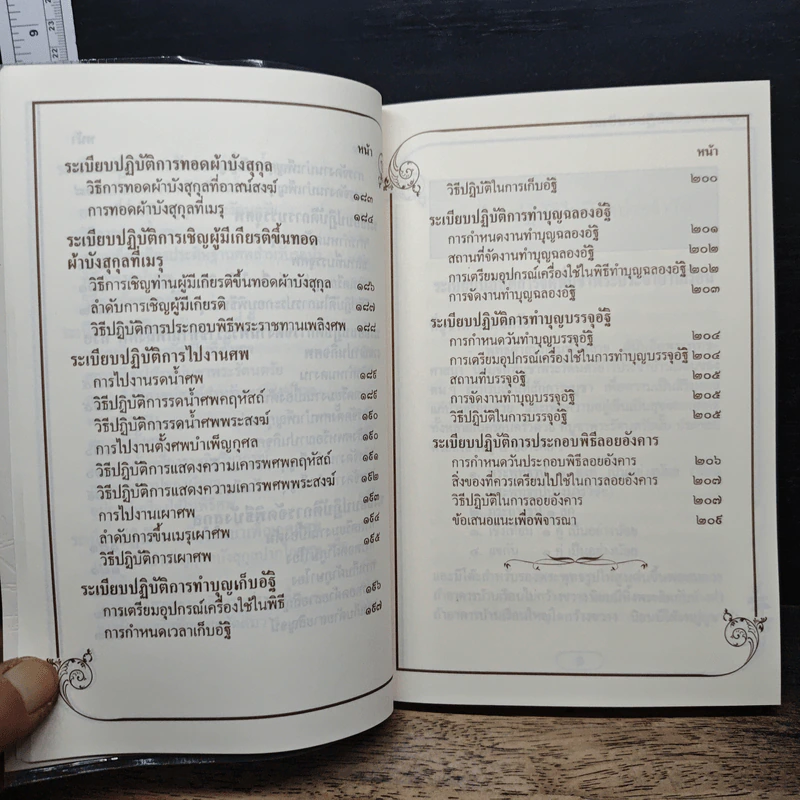 หน้า
ระเบียบปฏิบัติการทอดผ้าบังสุกุล
วิธีการทอดผ้าบังสุกุลที่อาสน์สงฆ์ ๑๘๓
การทอดผ้าบังสุกุลที่เมรุ ๑๘๔
ระเบียบปฏิบัติการเชิญผู้มีเกียรติขึ้นทอด
ผ้าบังสุกุลที่เมรุ
วิธีการเชิญท่านผู้มีเกียรติขึ้นทอดผ้าบังสุกุล ๑๘๖
ลำดับการเชิญผู้มีเกียรติ ๑๘๗
วิธีปฏิบัติการประกอบพิธีพระราชทานเพลิงศพ ๑๘๘
ระเบียบปฏิบัติการไปงานศพ
การไปงานรดน้ำศพ ๑๘๙
วิธีปฏิบัติการรดน้ำศพคฤหัสถ์ ๑๘๙
วิธีปฏิบัติการรดน้ำศพพระสงฆ์ ๑๙๐
การไปงานตั้งศพบำเพ็ญกุศล ๑๙๐
วิธีปฏิบัติการแสดงความเคารพศพคฤหัสถ์ ๑๙๑
วิธีปฏิบัติการแสดงความเคารพศพพระสงฆ์ ๑๙๒
การไปงานเผาศพ ๑๙๓
ลำดับการขึ้นเมรุเผาศพ ๑๙๔
วิธีปฏิบัติการเผาศพ ๑๙๕
ระเบียบปฏิบัติการทำบุญเก็บอัฐิ
การเตรียมอุปกรณ์เครื่องใช้ในพิธี ๑๙๖
การกำหนดเวลาเก็บอัฐิ ๑๙๗
หน้า
วิธีปฏิบัติในการเก็บอัฐิ ๒๐๐
ระเบียบปฏิบัติการทำบุญฉลองอัฐิ
การกำหนดงานทำบุญฉลองอัฐิ ๒๐๑
สถานที่จัดงานทำบุญฉลองอัฐิ ๒๐๒
การเตรียมอุปกรณ์เครื่องใช้ในพิธีทำบุญฉลองอัฐิ ๒๐๒
การจัดงานทำบุญฉลองอัฐิ ๒๐๓
ระเบียบปฏิบัติการทำบุญบรรจุอัฐิ
การกำหนดวันทำบุญบรรจุอัฐิ ๒๐๔
การเตรียมอุปกรณ์เครื่องใช้ในการทำบุญบรรจุอัฐิ ๒๐๔
สถานที่บรรจุอัฐิ ๒๐๕
การจัดงานทำบุญบรรจุอัฐิ ๒๐๕
วิธีปฏิบัติในการบรรจุอัฐิ ๒๐๕
ระเบียบปฏิบัติการประกอบพิธีลอยอังคาร
การกำหนดวันประกอบพิธีลอยอังคาร ๒๐๖
สิ่งของที่ควรเตรียมไปใช้ในการลอยอังคาร ๒๐๗
วิธีปฏิบัติในการลอยอังคาร ๒๐๗
ข้อเสนอแนะเพื่อพิจารณา ๒๐๙